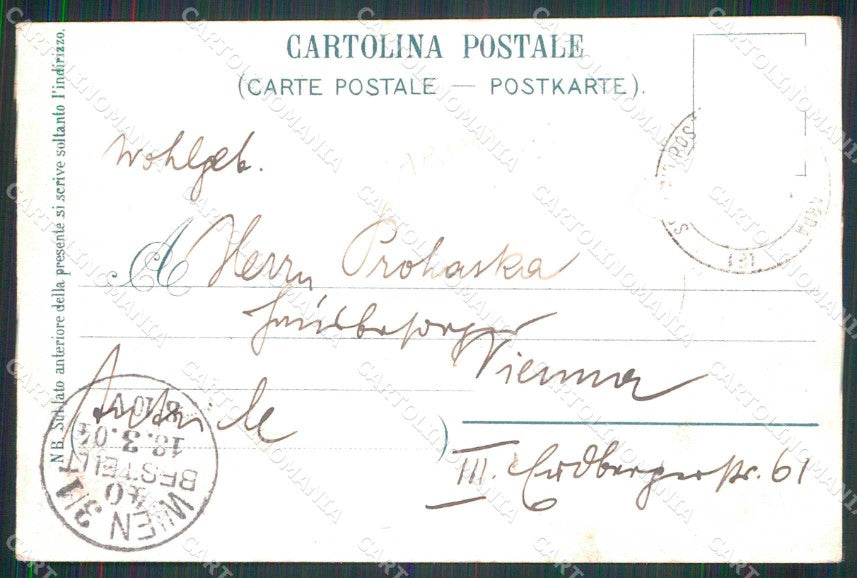 CARTOLINA POSTALE
(CARTE POSTALE — POSTKARTE).
NB. Sul lato anteriore della presente si scrive soltanto l'indirizzo.
Wohlgeb.
A Herrn Prohaska
Hausbesorger
Vienna
III. Erdbergerstr. 61
WIEN 3/1
40
BESTELLT
18.3.04
8-10V
CARTOLINOMANIA